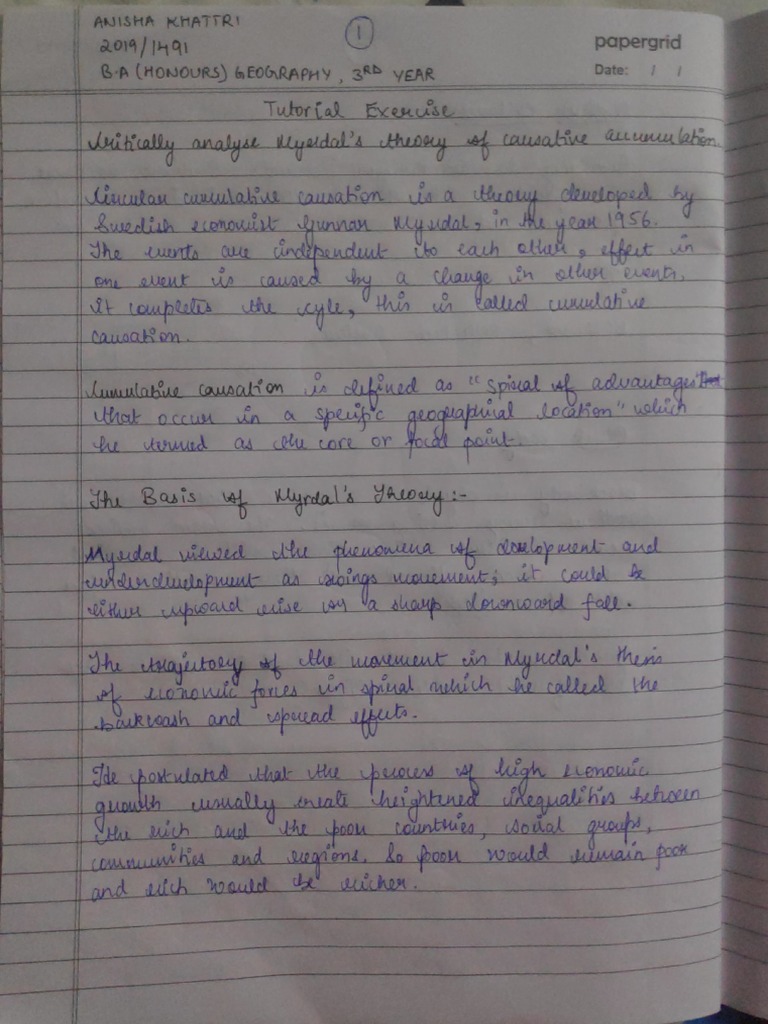 ANISHA KHATTRI
1
2019/1491
papergrid
B.A (HONOURS) GEOGRAPHY, 3RD YEAR
Date: / /
Tutorial Exercise
Critically analyse Myrdal's theory of causative accumulation.
Circular cumulative causation is a theory developed by
Swedish economist Gunnar Myrdal, in the year 1956.
The events are independent to each other, effect in
one event is caused by a change in other events,
it completes the cyle, this is called cumulative
causation.
Cumulative causation is defined as "spiral of advantages
that occur in a specific geographical location" which
he termed as the core or focal point.
The Basis of Myrdal's Theory:-
Myrdal viewed the phenomena of development and
underdevelopment as swings movement; it could be
either upward rise or a sharp downward fall.
The trajectory of the movement in Myrdal's thesis
of economic forces in spiral which he called the
backwash and spread effects.
He postulated that the process of high economic
growth usually create heightened inequalities between
the rich and the poor countries, social groups,
communities and regions. So poor would remain poor
and rich would be richer.